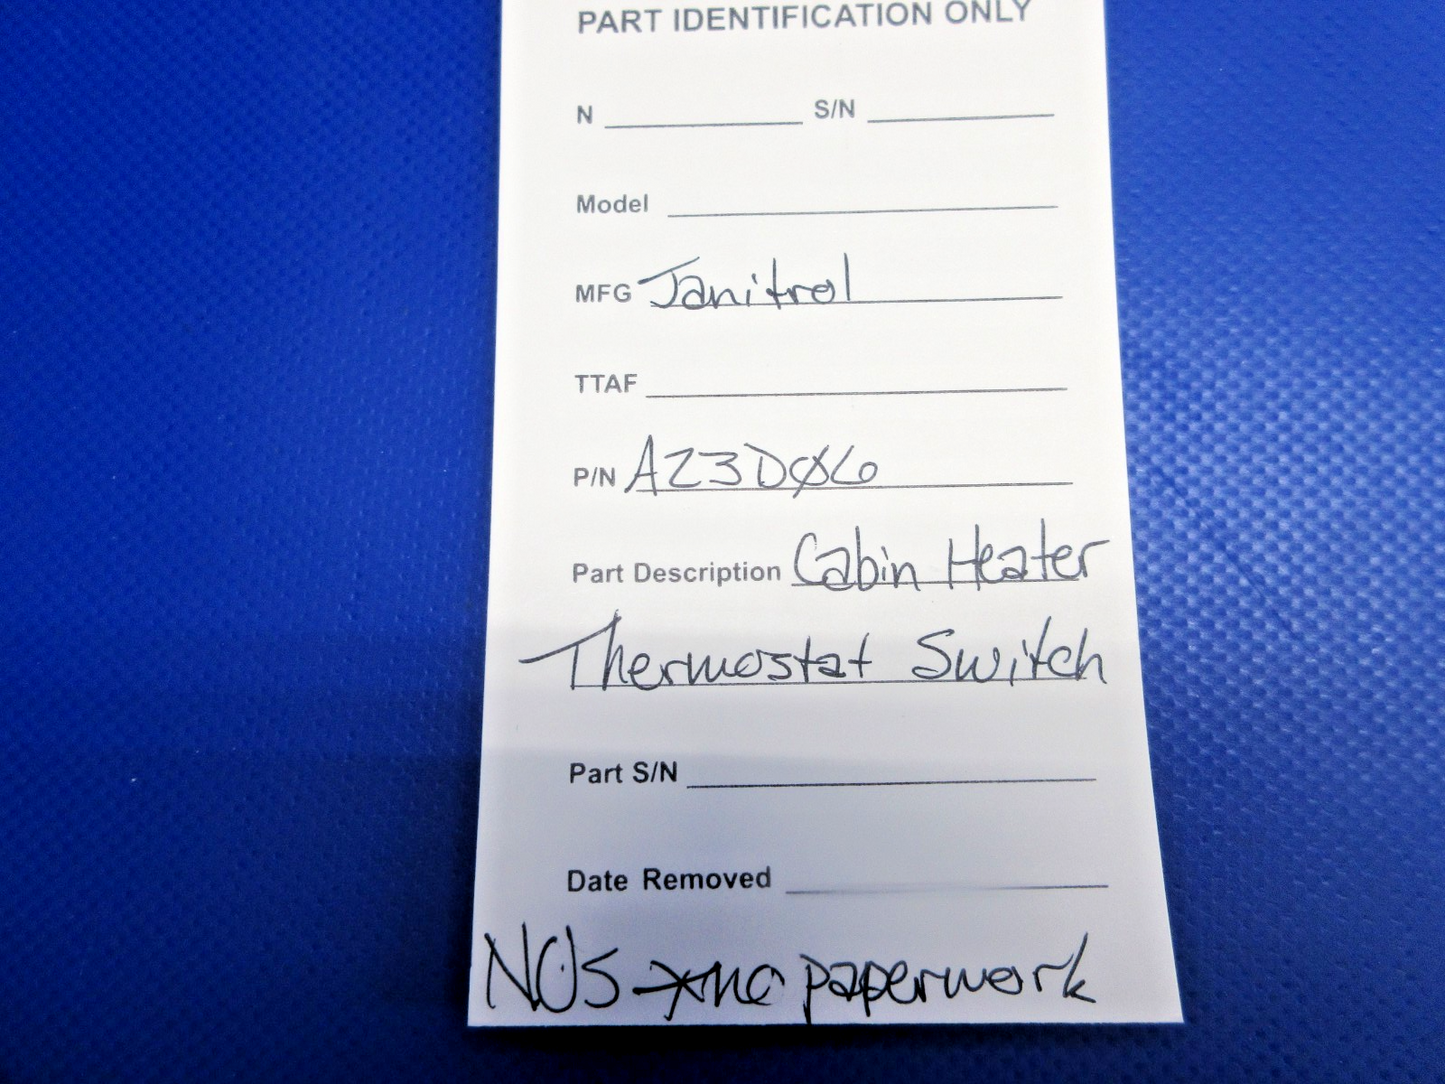 PART IDENTIFICATION ONLY
N S/N
Model
MFG Janitrol
TTAF
P/N A23DØ6
Part Description Cabin Heater
Thermostat Switch
Part S/N
Date Removed
NOS *no paperwork